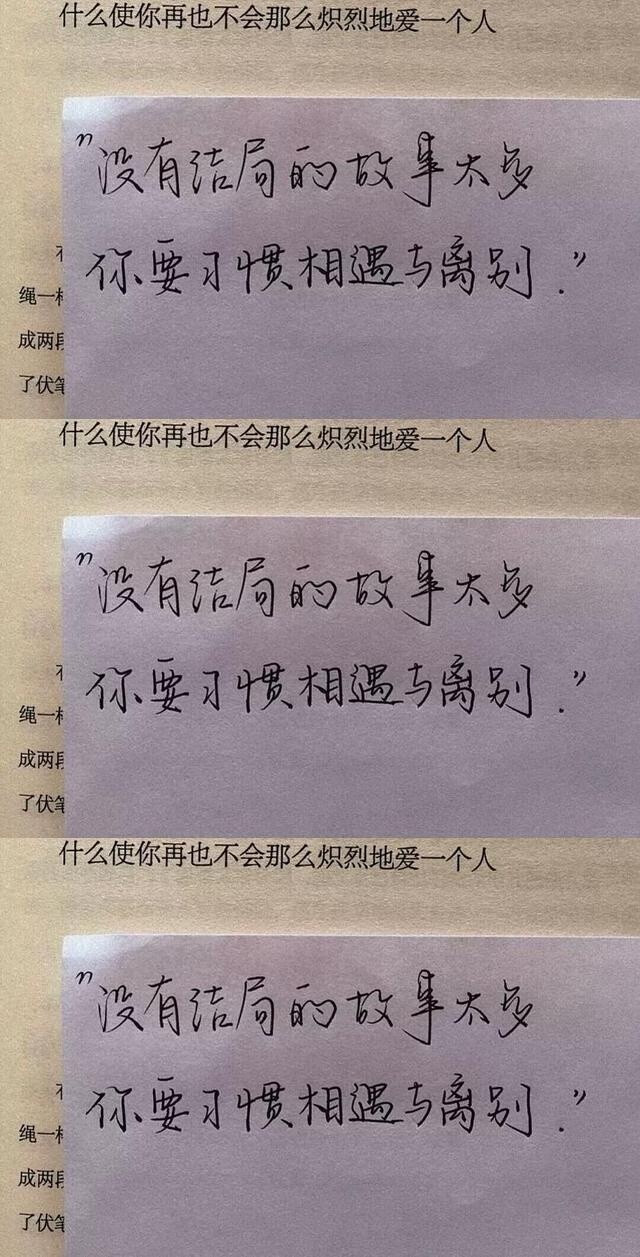 什么使你再也不会那么炽烈地爱一个人
"没有结局的故事太多
你要习惯相遇与离别."
绳一
成两段
了伏笔
什么使你再也不会那么炽烈地爱一个人
"没有结局的故事太多
你要习惯相遇与离别."
绳一
成两段
了伏笔
什么使你再也不会那么炽烈地爱一个人
"没有结局的故事太多
你要习惯相遇与离别."
绳一
成两段
了伏笔